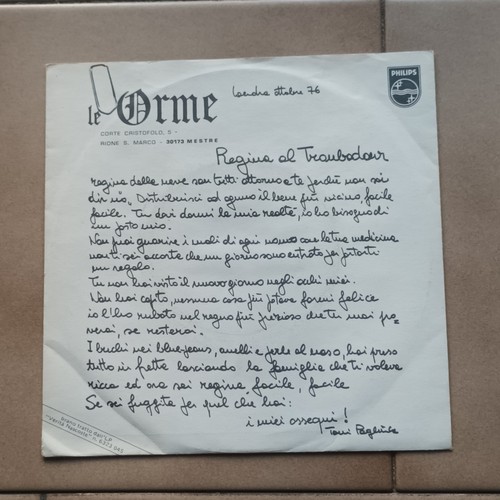 le Orme
CORTE CRISTOFOLO, 5 -
RIONE S. MARCO - 30173 MESTRE
Londra ottobre 76
PHILIPS
Regina al Troubadour
regina della neve son tutti attorno a te perché non sai
dir no. Distribuisci ad ognuno il bene più vicino, facile
facile. Tu devi darmi la mia realtà, io ho bisogno di
un posto mio.
Non puoi guarire i mali di ogni uomo con la tua medicina
non ti sei accorta che un giorno sono entrato per portarti
un regalo.
Tu non hai visto il nuovo giorno negli occhi miei.
Non hai capito, nessuna cosa più poteva farmi felice
io l'ho rubato nel regno più prezioso che tu mai po=
verai, se resterai.
I buchi nei bluejeans, anelli e perle al naso, hai preso
tutto in fretta lasciando la famiglia che ti voleva
ricca ed ora sei regina facile, facile
Se sei fuggita per quel che hai:
i miei ossequi!
Toni Pagliuca
brano tratto dall'LP
"Verità Nascoste" n. 6323 045